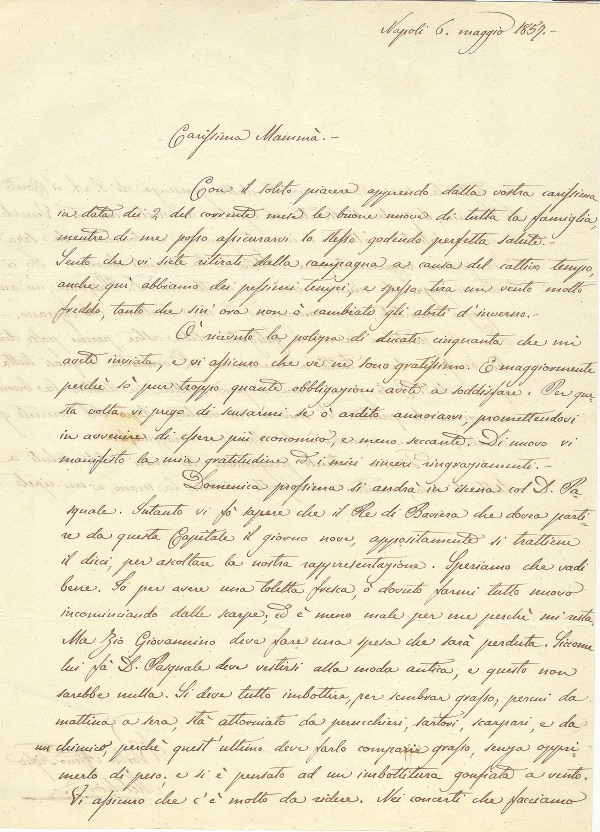 Napoli 6. maggio 1857.-
Carissima Mammà.-
Con il solito piacere apprendo dalla vostra carissima
in data dei 2. del corrente mese le buone nuove di tutta la famiglia,
mentre di me posso assicurarvi lo stesso godendo perfetta salute.-
Sento che vi siete ritirati dalla campagna a causa del cattivo tempo,
anche quì abbiamo dei pessimi tempi, e spesso tira un vento molto
freddo, tanto che sin' ora non ò cambiato gli abiti d'inverno.-
Ò ricevuto la polizza di ducati cinquanta che mi
avete inviata, e vi assicuro che ve ne sono gratissimo. E maggiormente
perchè sò pur troppo quante obbligazioni avete a soddisfare. Per que-
sta volta vi prego di scusarmi se ò ardito annoiarvi, promettendovi
in avvenire di essere più economico, e meno seccante. Di nuovo vi
manifesto la mia gratitudine ed i miei sinceri ringraziamenti.-
Domenica prossima si andrà in iscena col D. Pa-
squale. Intanto vi fò sapere che il Re di Baviera che dovea parti-
re da questa Capitale il giorno nove, appositamente si trattiene
il dieci, per ascoltare la nostra rappresentazione. Speriamo che vadi
bene. Io per avere una toletta fresca, ò dovuto farmi tutto nuovo
incominciando dalle scarpe, ed è meno male per me perchè mi resta.
Ma Zio Giovannino deve fare una spesa che sarà perduta. Siccome
lui fà D. Pasquale deve vestirsi alla moda antica, e questo non
sarebbe nulla. Si deve tutto imbottire, per sembrar grasso, percui da
mattina a sera, stà attorniato da perucchieri, sartori, scarpari, e da
un chimico, perchè quest' ultimo deve farlo comparire grasso, senza oppri-
merlo di peso, e si è pensato ad un imbottitura gonfiata a vento.
Vi assicuro che c'è molto da ridere. Nei concerti che facciamo